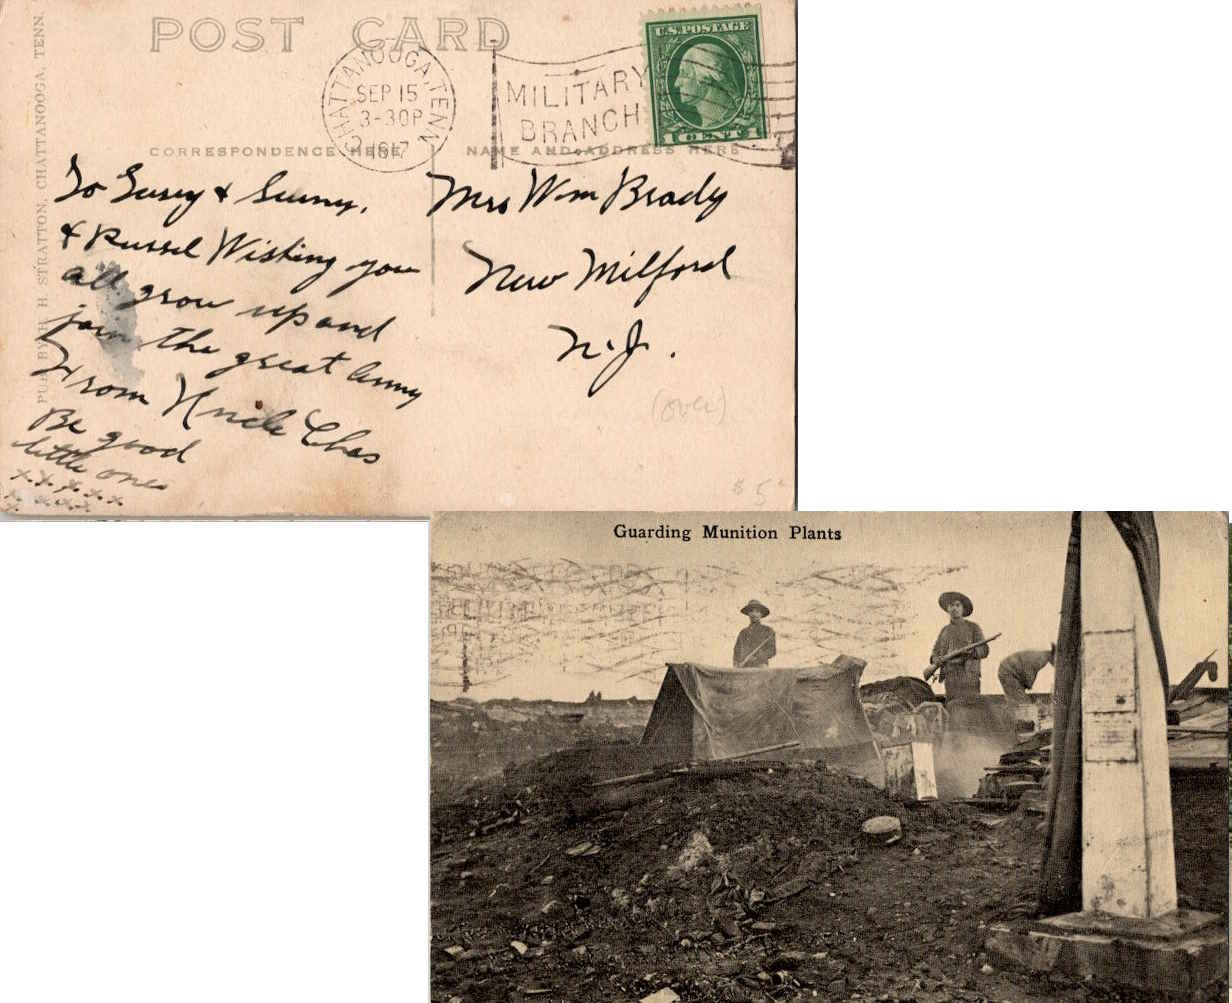 POST CARD
CHATTANOOGA, TENN.
SEP 15
3-30P
1917
MILITARY
BRANCH
U.S. POSTAGE
1 CENT 1
CORRESPONDENCE HERE
NAME AND ADDRESS HERE
PUB. BY H. H. STRATTON, CHATTANOOGA, TENN.
To Susey & Sunny,
& Russel Wishing you
all grow up and
join the great Army
From Uncle Chas
Be good
little ones
x x x x x
x x x x x
x
Mrs Wm Brady
New Milford
N.J.
(over)
$5
Guarding Munition Plants